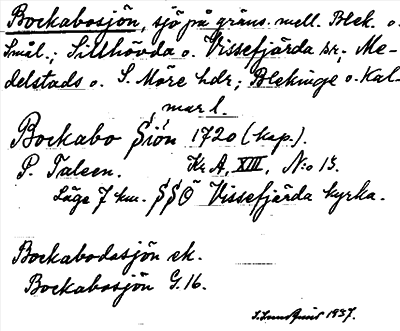 Bockabosjön, sjö på gräns. mell. Blek. o.
Smål.; Sillhövda o. Vissefjärda sr, Me-
delstads o. S. Möre hdr; Blekinge o. Kal-
mar l.
Bockabo Siön 1720 (kap).
P. Taleen. Kr A, XIII, N:o 15.
Läge 7 km. SSÖ Vissefjärda kyrka.
Bockabodasjön ek.
Bockabosjön G.16.
1937.